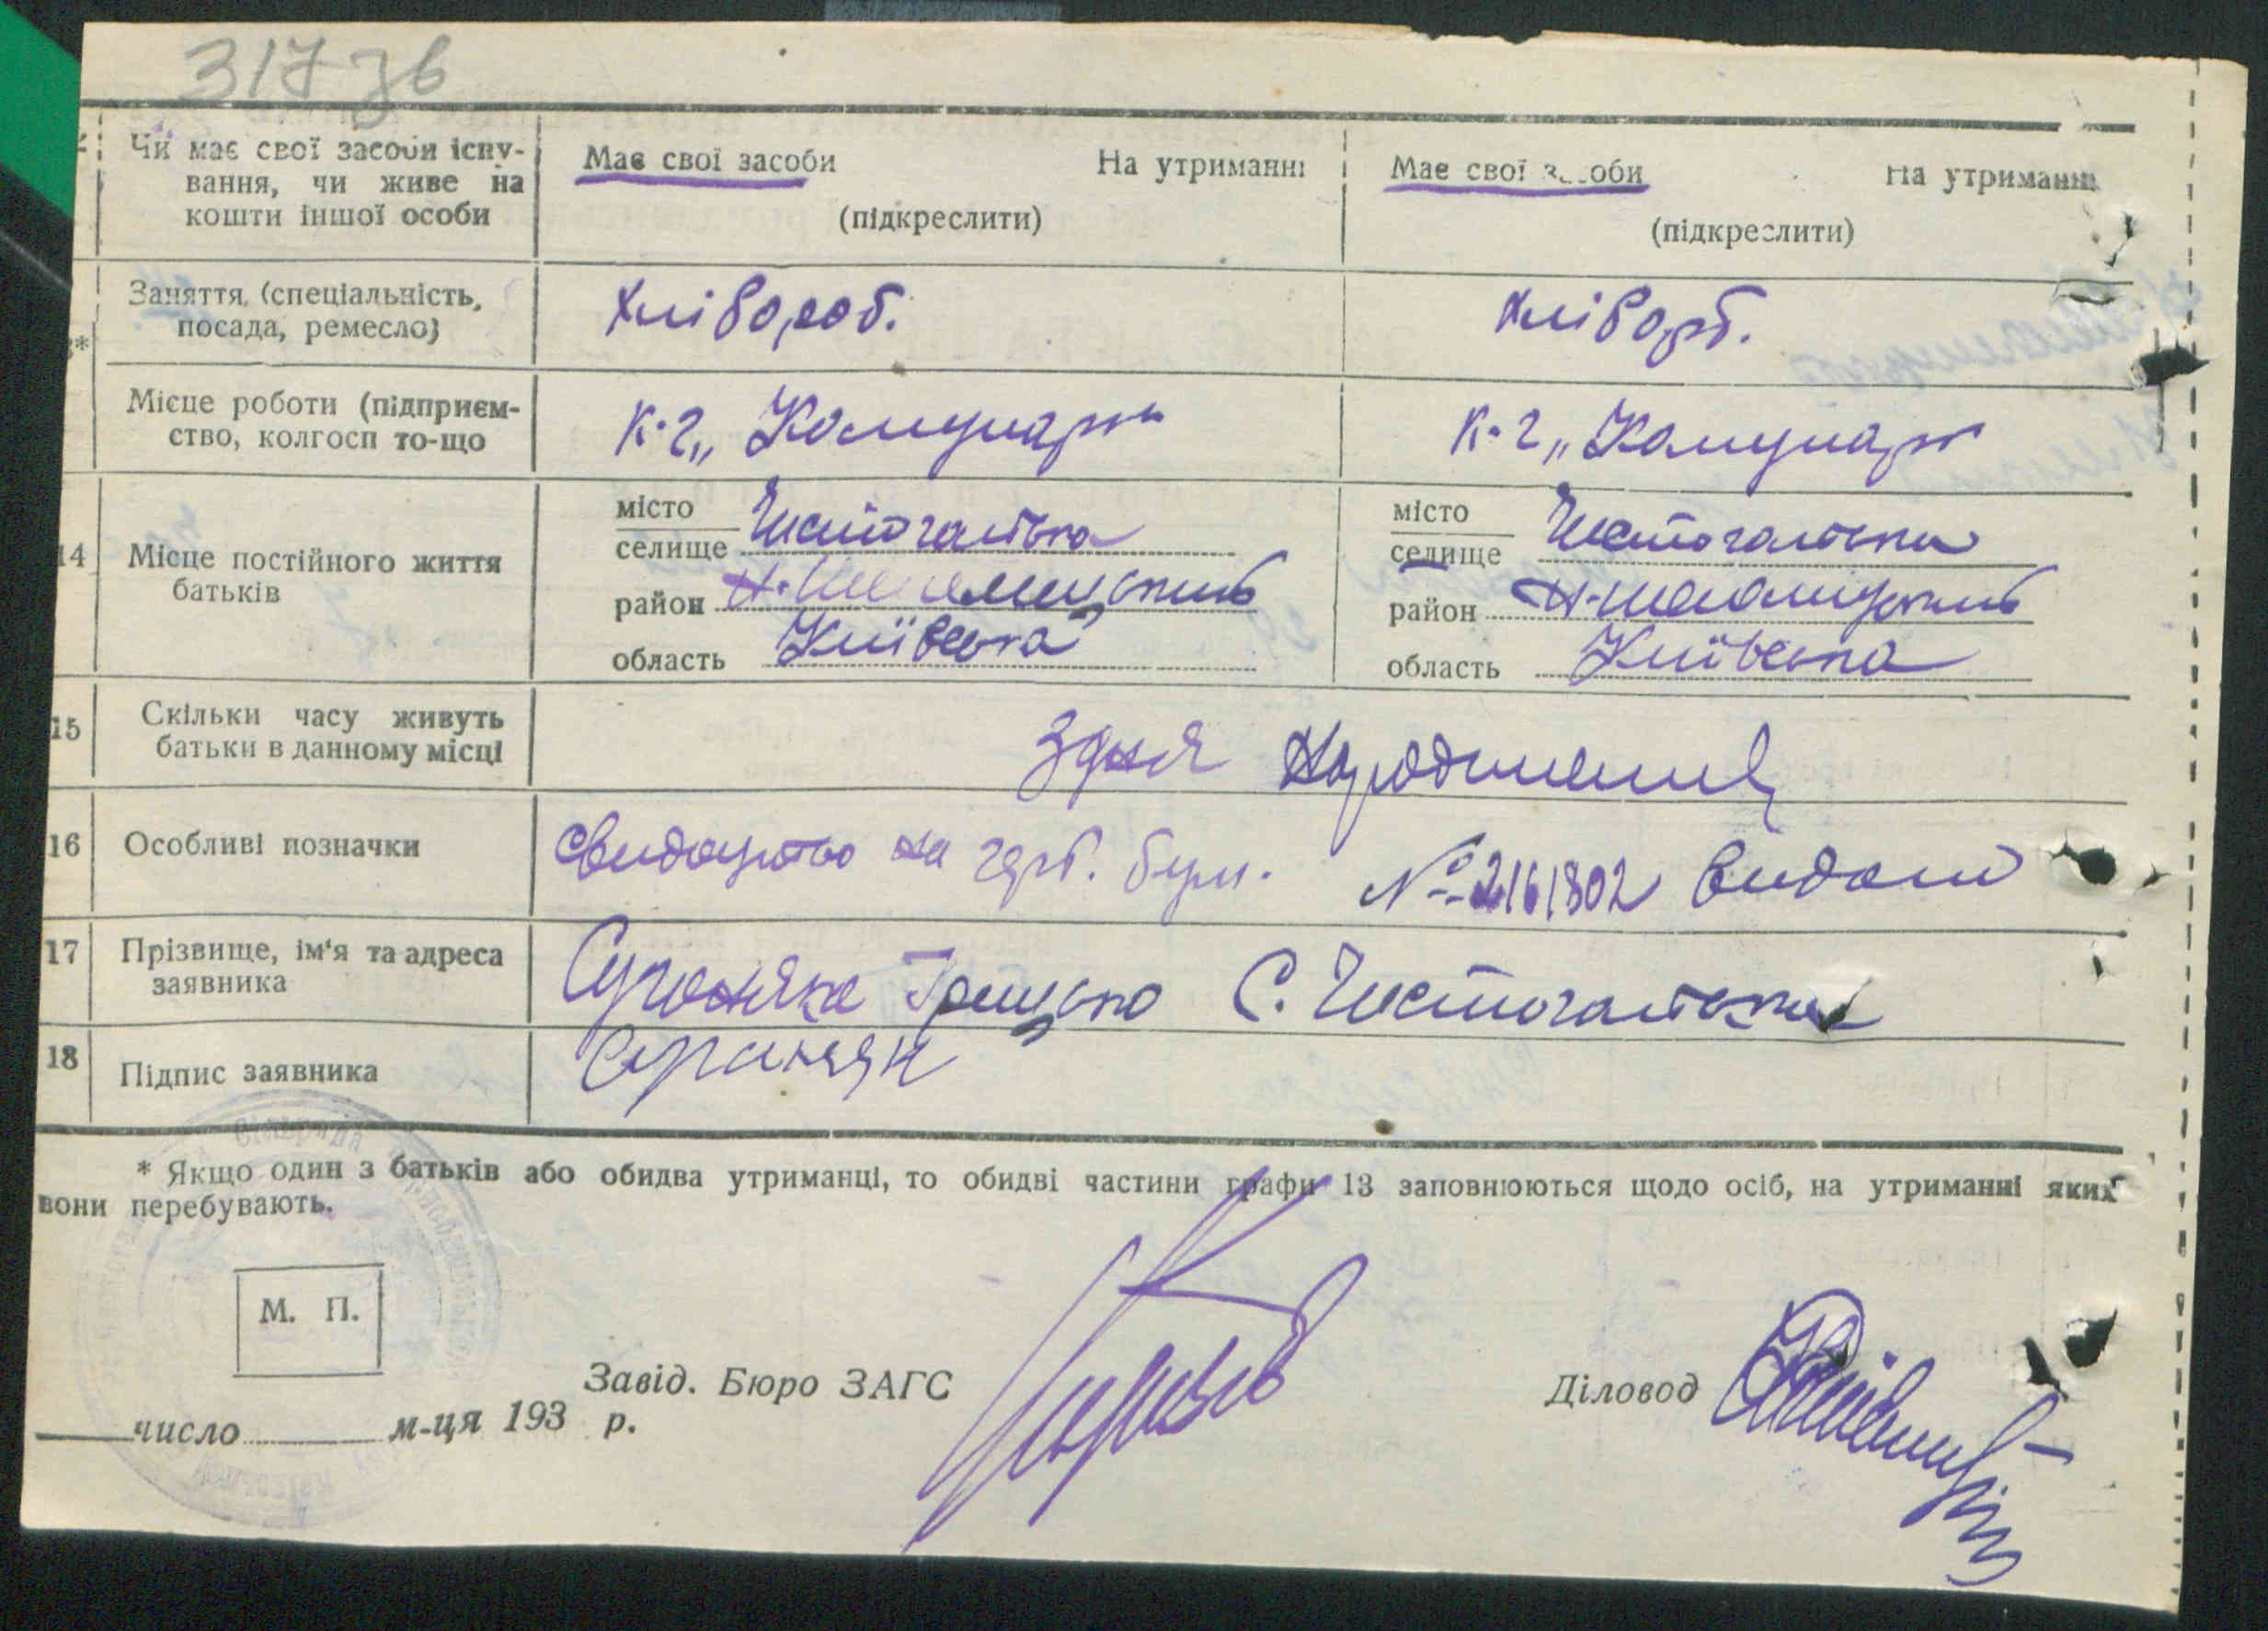 317 зв
Чи має свої засоби існу-
вання, чи живе на
кошти іншої особи
Має свої засоби На утриманні
(підкреслити)
Має свої засоби На утриманні
(підкреслити)
Заняття (спеціальність,
посада, ремесло)
Хлібороб.
Хліборб.
Місце роботи (підприєм-
ство, колгосп то-що
К-г „Комунар"
К-г „Комунар"
14 Місце постійного життя
батьків
місто
селище Чистогалівка
район Н-Шепелицький
область Київська
місто
селище Чистогалівка
район Н-Шепелицький
область Київська
15 Скільки часу живуть
батьки в данному місці
З дня народження
16 Особливі позначки
Свидоцтво на герб. бум. № 2161802 видано
17 Прізвище, ім'я та адреса
заявника
Грицько С. Чистогалівка
18 Підпис заявника
* Якщо один з батьків або обидва утриманці, то обидві частини графи 13 заповнюються щодо осіб, на утриманні яких
вони перебувають.
М. П.
Завід. Бюро ЗАГС
Діловод
число м-ця 193 р.